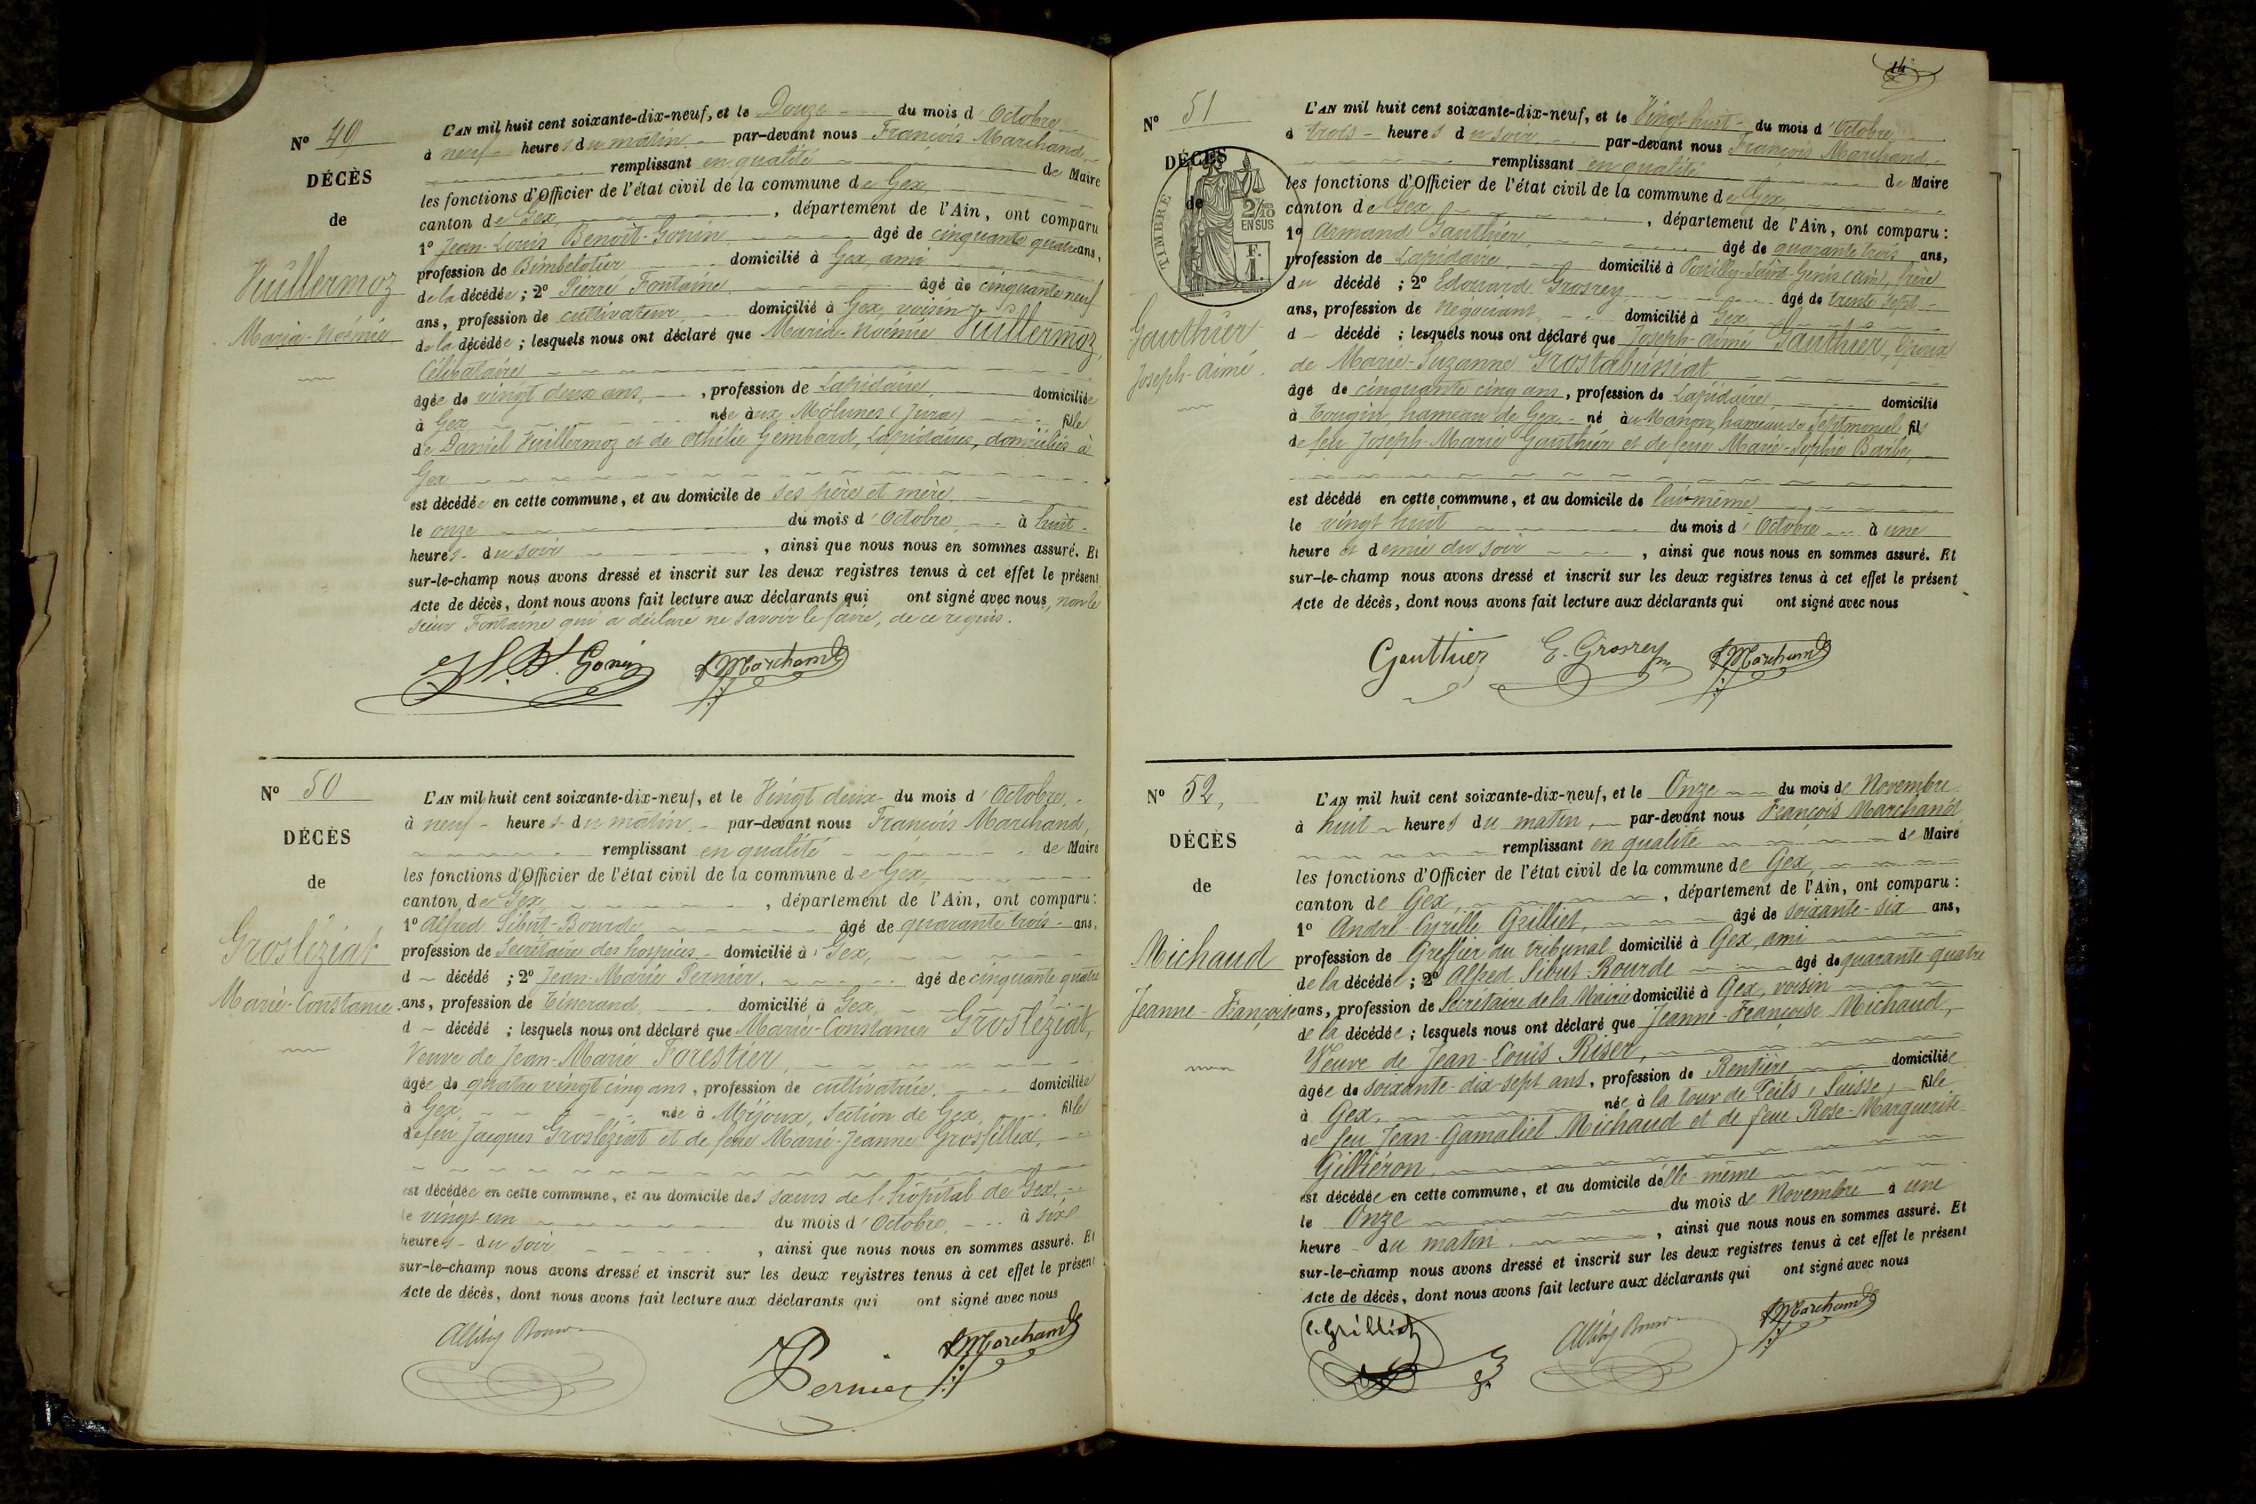 Nº 49
DÉCÈS
de
Vuillermoz
Maria-Noémie
L'AN mil huit cent soixante-dix-neuf, et le Douze du mois d'Octobre
à neuf heures du matin par-devant nous François Marchand,
remplissant en qualité de Maire
les fonctions d'Officier de l'état civil de la commune de Gex,
canton de Gex, département de l'Ain, ont comparu
1º Jean-Louis Benoit-Gonin âgé de cinquante quatre ans,
profession de Bimbelotier domicilié à Gex, ami
de la décédée; 2º Pierre Fontaine âgé de cinquante neuf
ans, profession de cultivateur domicilié à Gex, voisin
de la décédée; lesquels nous ont déclaré que Maria-Noémie Vuillermoz,
Célibataire
âgée de vingt deux ans, profession de Lapidaire, domiciliée
à Gex née aux Molunes (Jura) fille
de Daniel Vuillermoz et de Othilie Gembard, Lapidaires, domiciliés à
Gex
est décédée en cette commune, et au domicile de ses père et mère
le onze du mois d'Octobre à huit
heures du soir, ainsi que nous nous en sommes assuré. Et
sur-le-champ nous avons dressé et inscrit sur les deux registres tenus à cet effet le présent
Acte de décès, dont nous avons fait lecture aux déclarants qui ont signé avec nous, non le
sieur Fontaine qui a déclaré ne savoir le faire, de ce requis.
J. L. Bt. Gonin F. Marchand
Nº 50
DÉCÈS
de
Grosléziat
Marie-Constance.
L'AN mil huit cent soixante-dix-neuf, et le Vingt deux du mois d'Octobre,
à neuf heures du matin par-devant nous François Marchand,
remplissant en qualité de Maire
les fonctions d'Officier de l'état civil de la commune de Gex,
canton de Gex, département de l'Ain, ont comparu:
1º Alfred Sibut-Bourde, âgé de quarante trois ans,
profession de Secrétaire des hospices domicilié à Gex,
d décédé; 2º Jean-Marie Pernier, âgé de cinquante quatre
ans, profession de Tisserand domicilié à Gex,
d décédé; lesquels nous ont déclaré que Marie-Constance Grosléziat,
Veuve de Jean-Marie Forestier,
âgée de quatre vingt cinq ans, profession de cultivatrice, domiciliée
à Gex née à Mijoux, section de Gex, fille
de feu Jacques Grosléziat et de feue Marie-Jeanne Grosfillex,
est décédée en cette commune, et au domicile des sœurs de l'hôpital de Gex,
le vingt un du mois d'Octobre à six
heures du soir, ainsi que nous nous en sommes assuré. Et
sur-le-champ nous avons dressé et inscrit sur les deux registres tenus à cet effet le présent
Acte de décès, dont nous avons fait lecture aux déclarants qui ont signé avec nous
Pernier F. Marchand
14
Nº 51
DÉCÈS
de
TIMBRE
2/10
EN SUS
F.
1.
Gauthier
Joseph-Aimé.
L'AN mil huit cent soixante-dix-neuf, et le Vingt huit du mois d'Octobre
à trois heures du soir par-devant nous François Marchand
remplissant en qualité de Maire
les fonctions d'Officier de l'état civil de la commune de Gex,
canton de Gex, département de l'Ain, ont comparu:
1º Armand Gauthier, âgé de quarante trois ans,
profession de Lapidaire, domicilié à Pouilly-Saint-Genis (ain), frère
du décédé; 2º Edouard Grosrey âgé de trente sept
ans, profession de Négociant domicilié à Gex
d décédé; lesquels nous ont déclaré que Joseph-aimé Gauthier, Époux
de Marie-Suzanne Grostabussiat
âgé de cinquante cinq ans, profession de Lapidaire, domicilié
à Tougin, hameau de Gex né à Manon, hameau de Septmoncel fils
de feu Joseph-Marie Gauthier et de feue Marie-Sophie Barbe,
est décédé en cette commune, et au domicile de lui-même
le vingt huit du mois d'Octobre à une
heure et demie du soir, ainsi que nous nous en sommes assuré. Et
sur-le-champ nous avons dressé et inscrit sur les deux registres tenus à cet effet le présent
Acte de décès, dont nous avons fait lecture aux déclarants qui ont signé avec nous
Gauthier E. Grosrey F. Marchand
Nº 52,
DÉCÈS
de
Michaud
Jeanne-Françoise
L'AN mil huit cent soixante-dix-neuf, et le Onze du mois de Novembre
à huit heures du matin, par-devant nous François Marchand
remplissant en qualité de Maire
les fonctions d'Officier de l'état civil de la commune de Gex,
canton de Gex, département de l'Ain, ont comparu:
1º André-Cyrille Grilliet, âgé de soixante-six ans,
profession de Greffier du tribunal domicilié à Gex, ami
de la décédée; 2º Alfred Sibut Bourde âgé de quarante-quatre
ans, profession de Secrétaire de la Mairie domicilié à Gex, voisin
de la décédée; lesquels nous ont déclaré que Jeanne-Françoise Michaud,
Veuve de Jean-Louis Riser,
âgée de soixante-dix-sept ans, profession de Rentière domiciliée
à Gex, née à la tour de Peils, Suisse, fille
de feu Jean-Gamaliel Michaud et de feue Rose-Marguerite
Gilliéron,
est décédée en cette commune, et au domicile d'elle-même
le Onze du mois de Novembre à une
heure du matin, ainsi que nous nous en sommes assuré. Et
sur-le-champ nous avons dressé et inscrit sur les deux registres tenus à cet effet le présent
Acte de décès, dont nous avons fait lecture aux déclarants qui ont signé avec nous
C. Grilliet F. Marchand